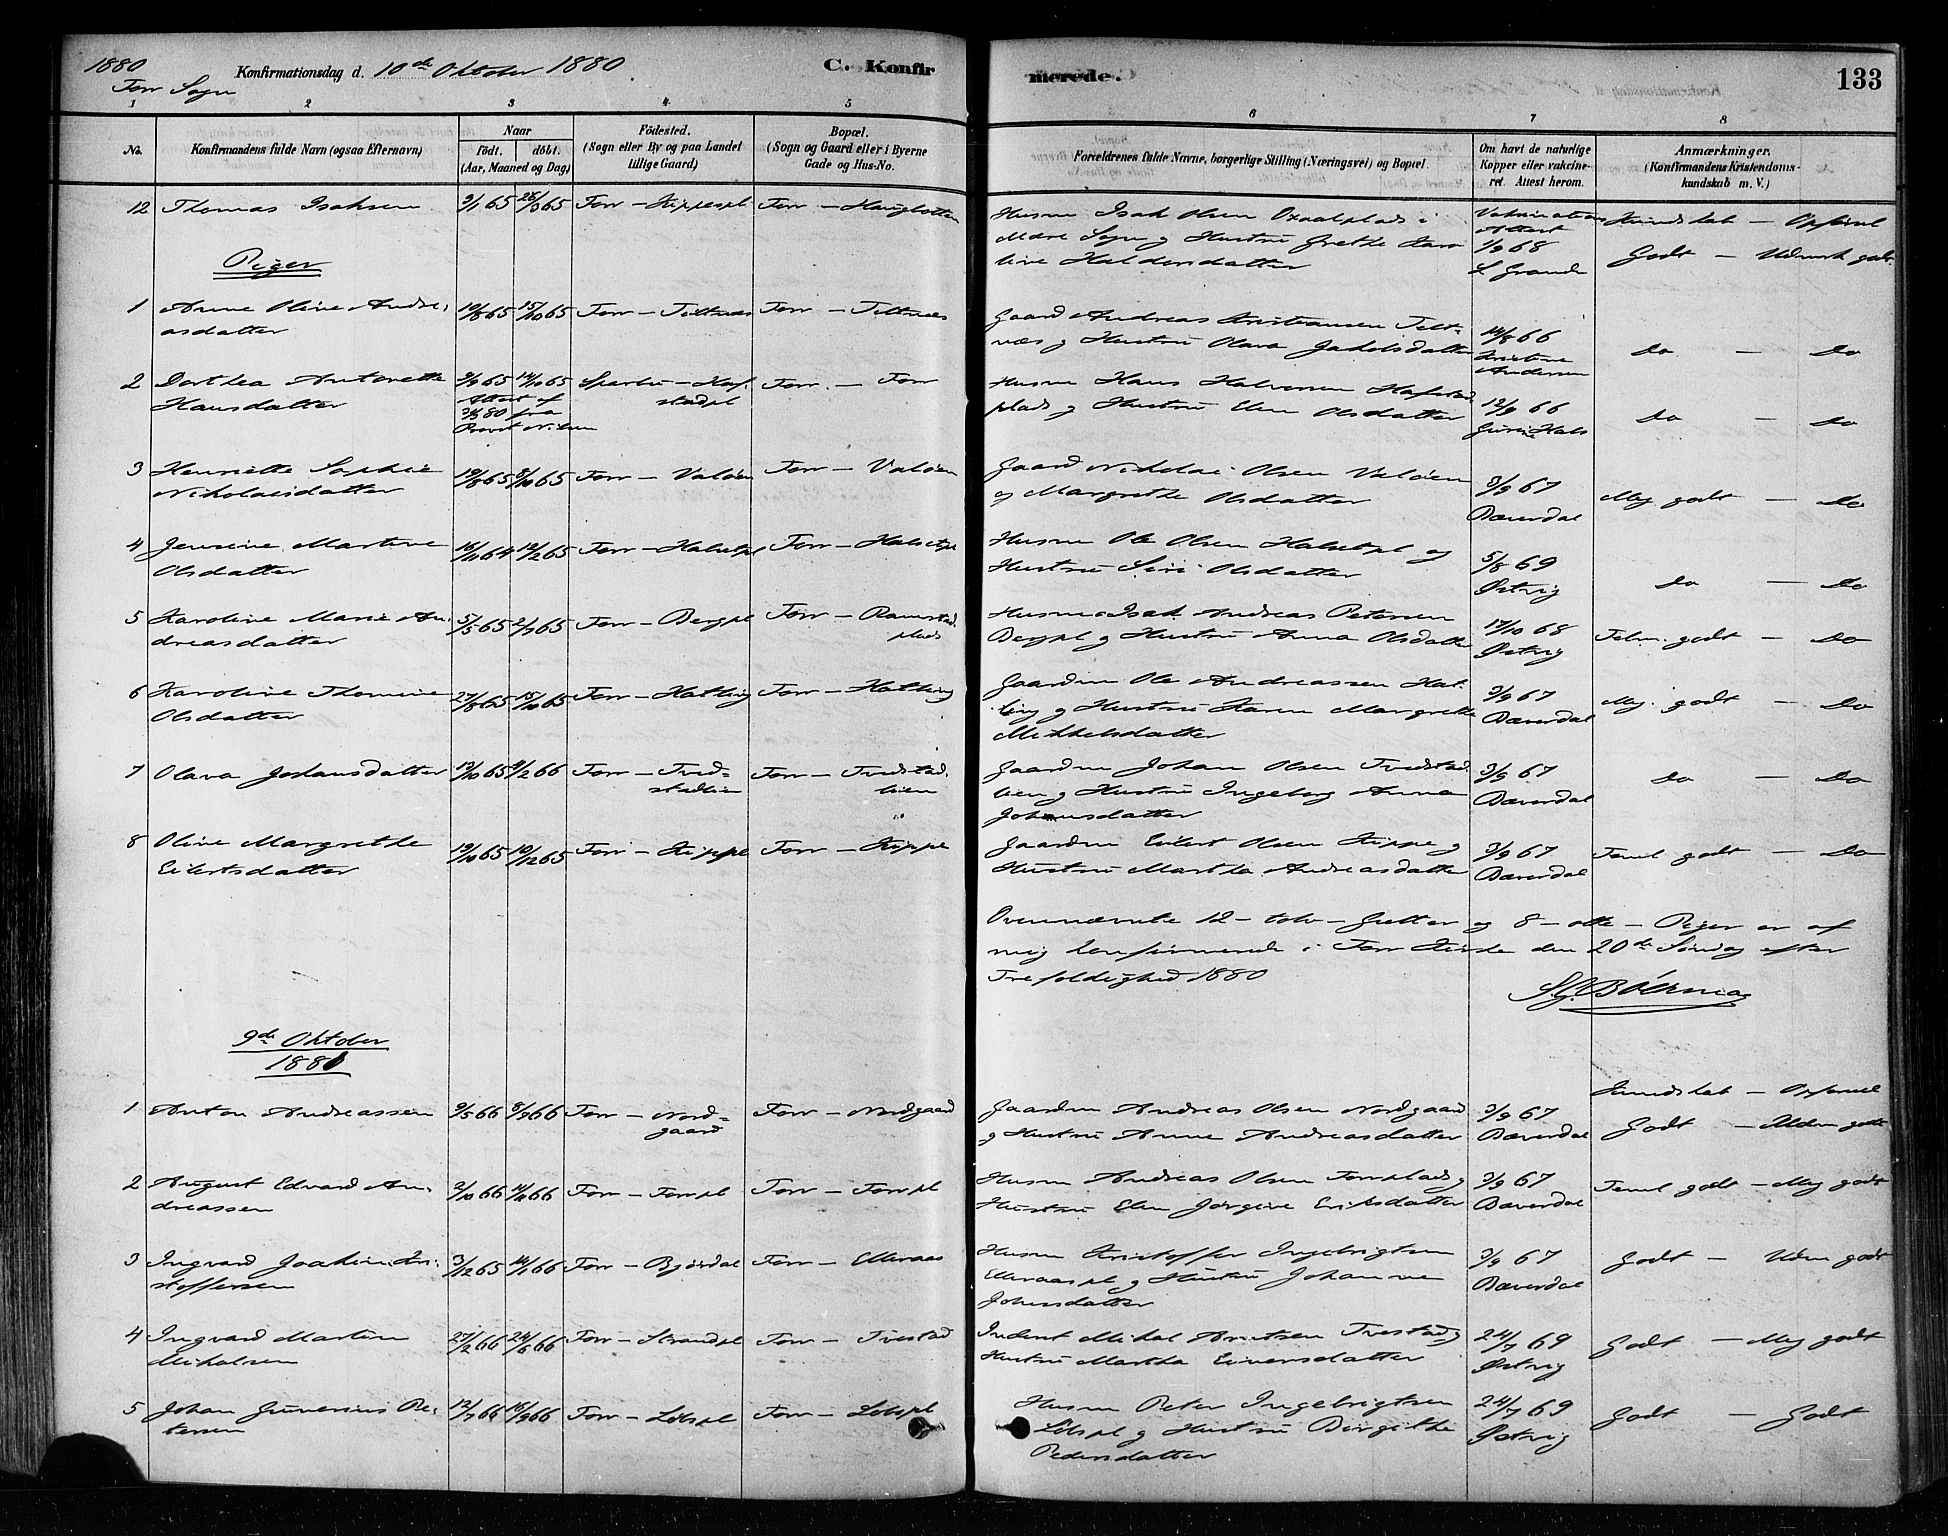 1880
Konfirmationsdag d. 10de Oktober 1880
C. Konfir
merede.
133
For Sogn
1 2 3 4 5 6 7 8
No.
Konfirmandens fulde Navn (ogsaa Efternavn)
Naar
födt. döbt.
(Aar, Maaned og Dag)
Födested.
(Sogn eller By og paa Landet
tillige Gaard)
Bopæl.
(Sogn og Gaard eller i Byerne
Gade og Hus-No.
Forældrenes fulde Navne, borgerlige Stilling (Næringsvei) og Bopæl.
Om havt de naturlige
Kopper eller vakcine-
ret. Attest herom.
Anmærkninger.
(Konfirmandens Kristendoms-
kundskab m. V.)
12 Thomas Isaksen 9/1 65 26/3 65 For – Kippespl For –
Husm Isak Olsen
Sogn og Hustru Grethe
Haldorsdatter
Vakcinations
Attest
1/9 68
L Grande
Kundskab – Opförsel
Godt – Udmærk godt.
Piger
1 Anne Oline Andre-
asdatter
19/8 65 15/10 65 For – Tiltnæs For – Tiltnæs
Gaard Andreas Kristiansen Tilt-
næs og Hustru Olava Jakobsdatter
14/8 66
Kristine
Andersen
Do – Do
2 Dorthea Antonette
Hansdatter
3/9 65 14/10 65
Attest af
80 fra
Provst
Sparbu – Haf-
stadpl
For. – For
Husm Hans Halvorsen Hafstad
plads og Hustru Elen Olsdatter
12/9 66
Hals
Do – Do
3 Henriette Sophie
Nikolaisdatter
19/8 65 8/10 65 For – Valöen For – Valöen
Gaard Nikolai Olsen Valöen
og Margrethe Olsdatter
3/9 67
Bæverdal
Meg. godt – Do
4 Jensine Martine
Olsdatter
16/11 64 19/2 65 For – Halsetpl For – Halsetpl
Husm Ole Olsen Halsetpl og
Hustru Siri Olsdatter
5/8 69
Østvig
Do – Do
5 Karoline Marie An-
dreasdatter
5/5 65 2/7 65 For – Bergpl For – Ramstad
plads
Husm Isak Andreas Petersen
Bergpl og Hustru Anna Olsdatter
17/10 68
Østvig
Tem. godt – Do
6 Karoline Thomine
Olsdatter
27/8 65 15/10 65 For – Hatling For – Hatling
Gaardm Ole Andreassen Hat-
ling og Hustru Karen Margrethe
Mikkelsdatter
3/9 67
Bæverdal
Meg. godt – Do
7 Olava Johansdatter 12/10 65 9/2 66 For – Tved-
stadlien
For – Tvedstad
lien
Gaardm Johan Olsen Tvedstad
lien og Hustru Ingeborg Anna
Johansdatter
3/9 67
Bæverdal
Do – Do
8 Oline Margrethe
Eilertsdatter
19/10 65 10/12 65 For – Kippe For – Kippe
Gaardm Eilert Olsen Kippe og
Hustru Martha Andreasdatter
3/9 67
Bæverdal
Teml godt – Do
Ovennævnte 12 – tolv – Gutter og 8 – otte – Piger er af
mig konfirmerede i For Kirke den 20de Söndag efter
Trefoldighed 1880
9de Oktober
1881
1 Anton Andreassen 9/5 66 8/7 66 For – Nord-
gaard
For – Nordgaard
Gaardm Andreas Olsen Nordgaard
og Hustru Anne Andreasdatter
3/9 67
Bæverdal
Kundskab – Opförsel
Godt – Udm godt
2 August Edvard An-
dreassen
2/10 66 11/11 66 For – Forpl For – Forpl
Husm Andreas Olsen Forplads og
Hustru Elen Jörgine Eriksdatter
3/9 67
Bæverdal
Teml godt – Meg godt
3 Ingvard Joakim Kri-
stoffersen
3/12 65 14/1 66 For – Björdal For – Elleraas
Husm Kristoffer Ingebrigtsen
Elleraaspl og Hustru Johanne
Johansdatter
3/9 67
Bæverdal
Godt – Udm godt
4 Ingvard Martin
Mikalsen
27/2 66 24/6 66 For – Strandpl For – Tvestad
Inderst Mikal Arntsen Tvestad og
Hustru Martha Eivensdatter
24/7 69
Østvig
Godt – Meg godt
5 Johan Gunerius Pe-
tersen
12/7 66 16/9 66 For – Libspl For – Libspl
Husm Peter Ingebrigtsen
Libspl og Hustru Birgithe
Pedersdatter
24/7 69
Østvig
Godt – Godt